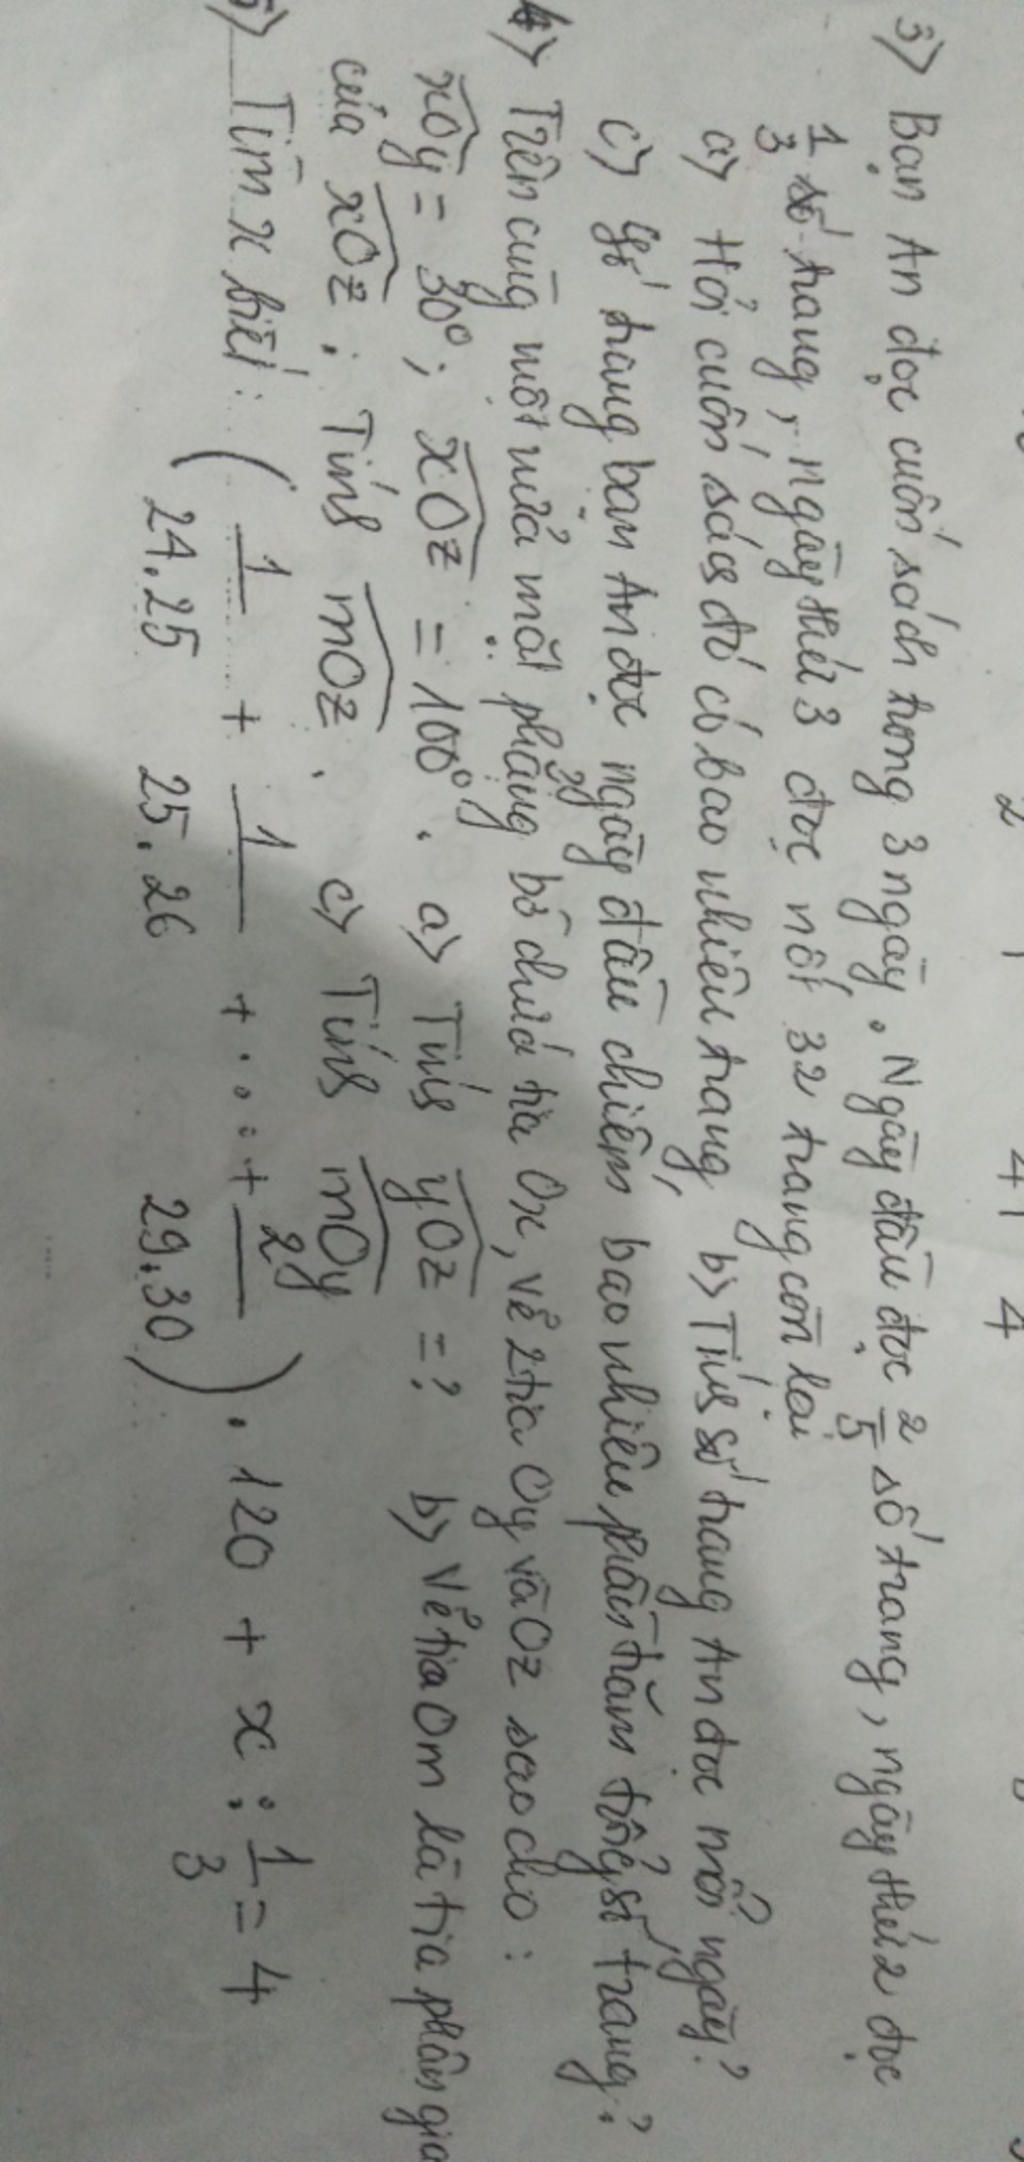 3) Bạn An đọc cuốn sách trong 3 ngày. Ngày đầu đọc 2/5 số trang, ngày thứ 2 đọc
1/3 số trang, ngày thứ 3 đọc nốt 32 trang còn lại
a) Hỏi cuốn sách đó có bao nhiêu trang, b) Tính số trang An đọc mỗi ngày?
c) Số trang bạn An đọc ngày đầu chiếm bao nhiêu phần trăm tổng số trang?
4) Trên cùng một nửa mặt phẳng bờ chứa tia Ox, vẽ 2 tia Oy và Oz sao cho:
xOy = 30°; xOz = 100°. a) Tính yOz = ? b) Vẽ tia Om là tia phân giá
của xOz; Tính mOz. c) Tính mOy
5) Tìm x biết: (1/24.25 + 1/25.26 + ... + 2y/29.30). 120 + x : 1/3 = 4